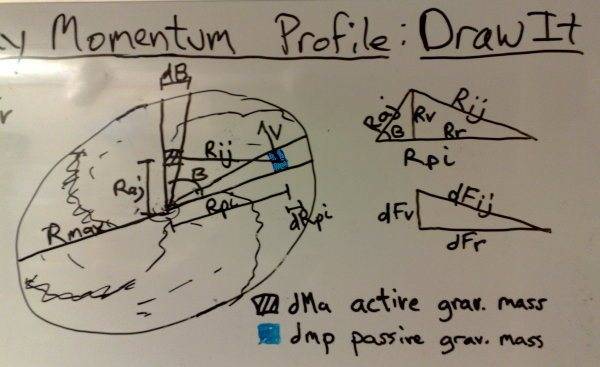 y Momentum Profile: DrawIt
r
dB
Rij
V
Raj
B
Rpi
dRpi
Rmax
Raj
Rv
Rij
B
Rr
Rpi
dFv
dFij
dFr
dMa active grav. mass
dmp passive grav. mass